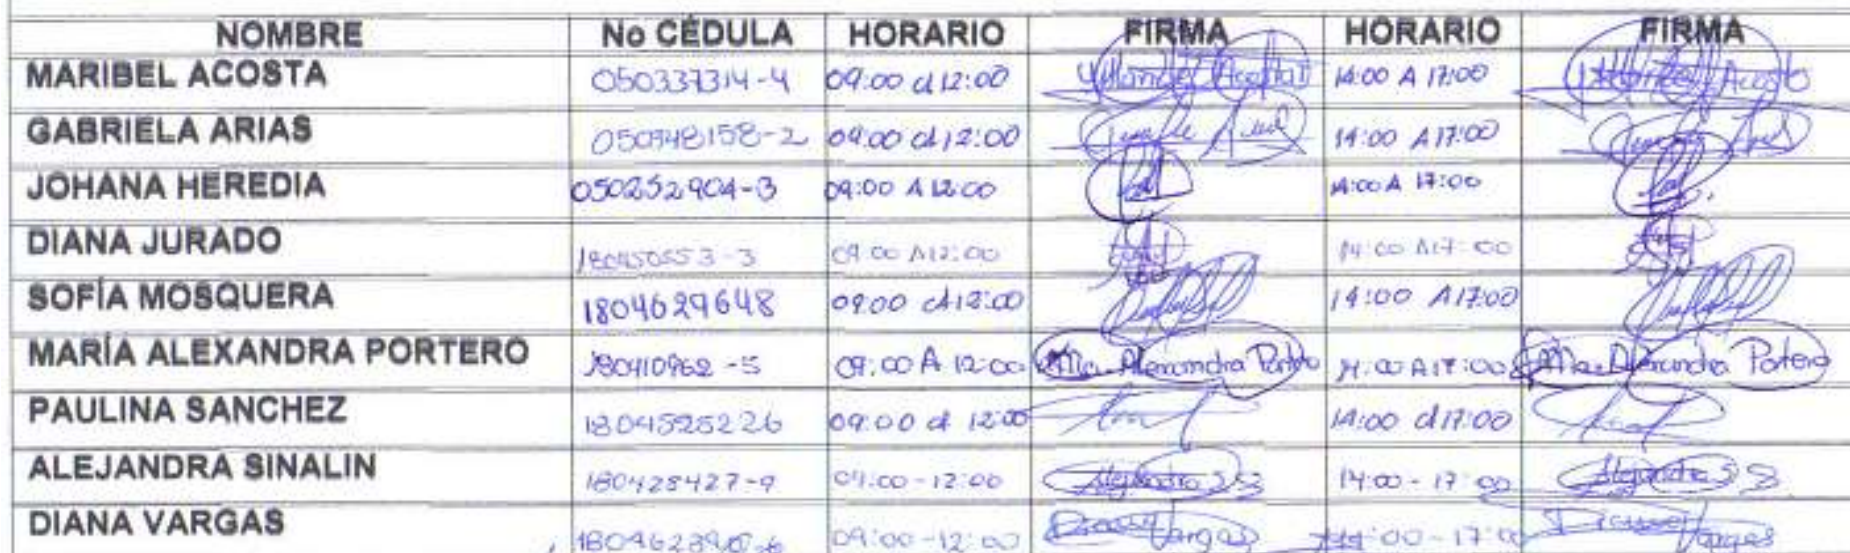 NOMBRE No CÉDULA HORARIO FIRMA HORARIO FIRMA
MARIBEL ACOSTA 050337314-4 09:00 a 12:00 Maribel Acosta 14:00 A 17:00 Maribel Acosta
GABRIELA ARIAS 050948158-2 09:00 a 12:00 14:00 A 17:00
JOHANA HEREDIA 050252904-3 09:00 A 12:00 14:00 A 17:00
DIANA JURADO 09:00 A 12:00 14:00 A 17:00
SOFÍA MOSQUERA 1804629648 09:00 a 12:00 14:00 A 17:00
MARÍA ALEXANDRA PORTERO 180410962-5 09:00 A 12:00 Ma. Alexandra Portero 14:00 A 17:00 Ma. Alexandra Portero
PAULINA SANCHEZ 1804525226 09:00 a 12:00 14:00 a 17:00
ALEJANDRA SINALIN 180428427-9 09:00 - 12:00 Alejandra S.S 14:00 - 17:00 Alejandra S.S.
DIANA VARGAS 09:00 - 12:00 Diana Vargas 14:00 - 17:00 Diana Vargas